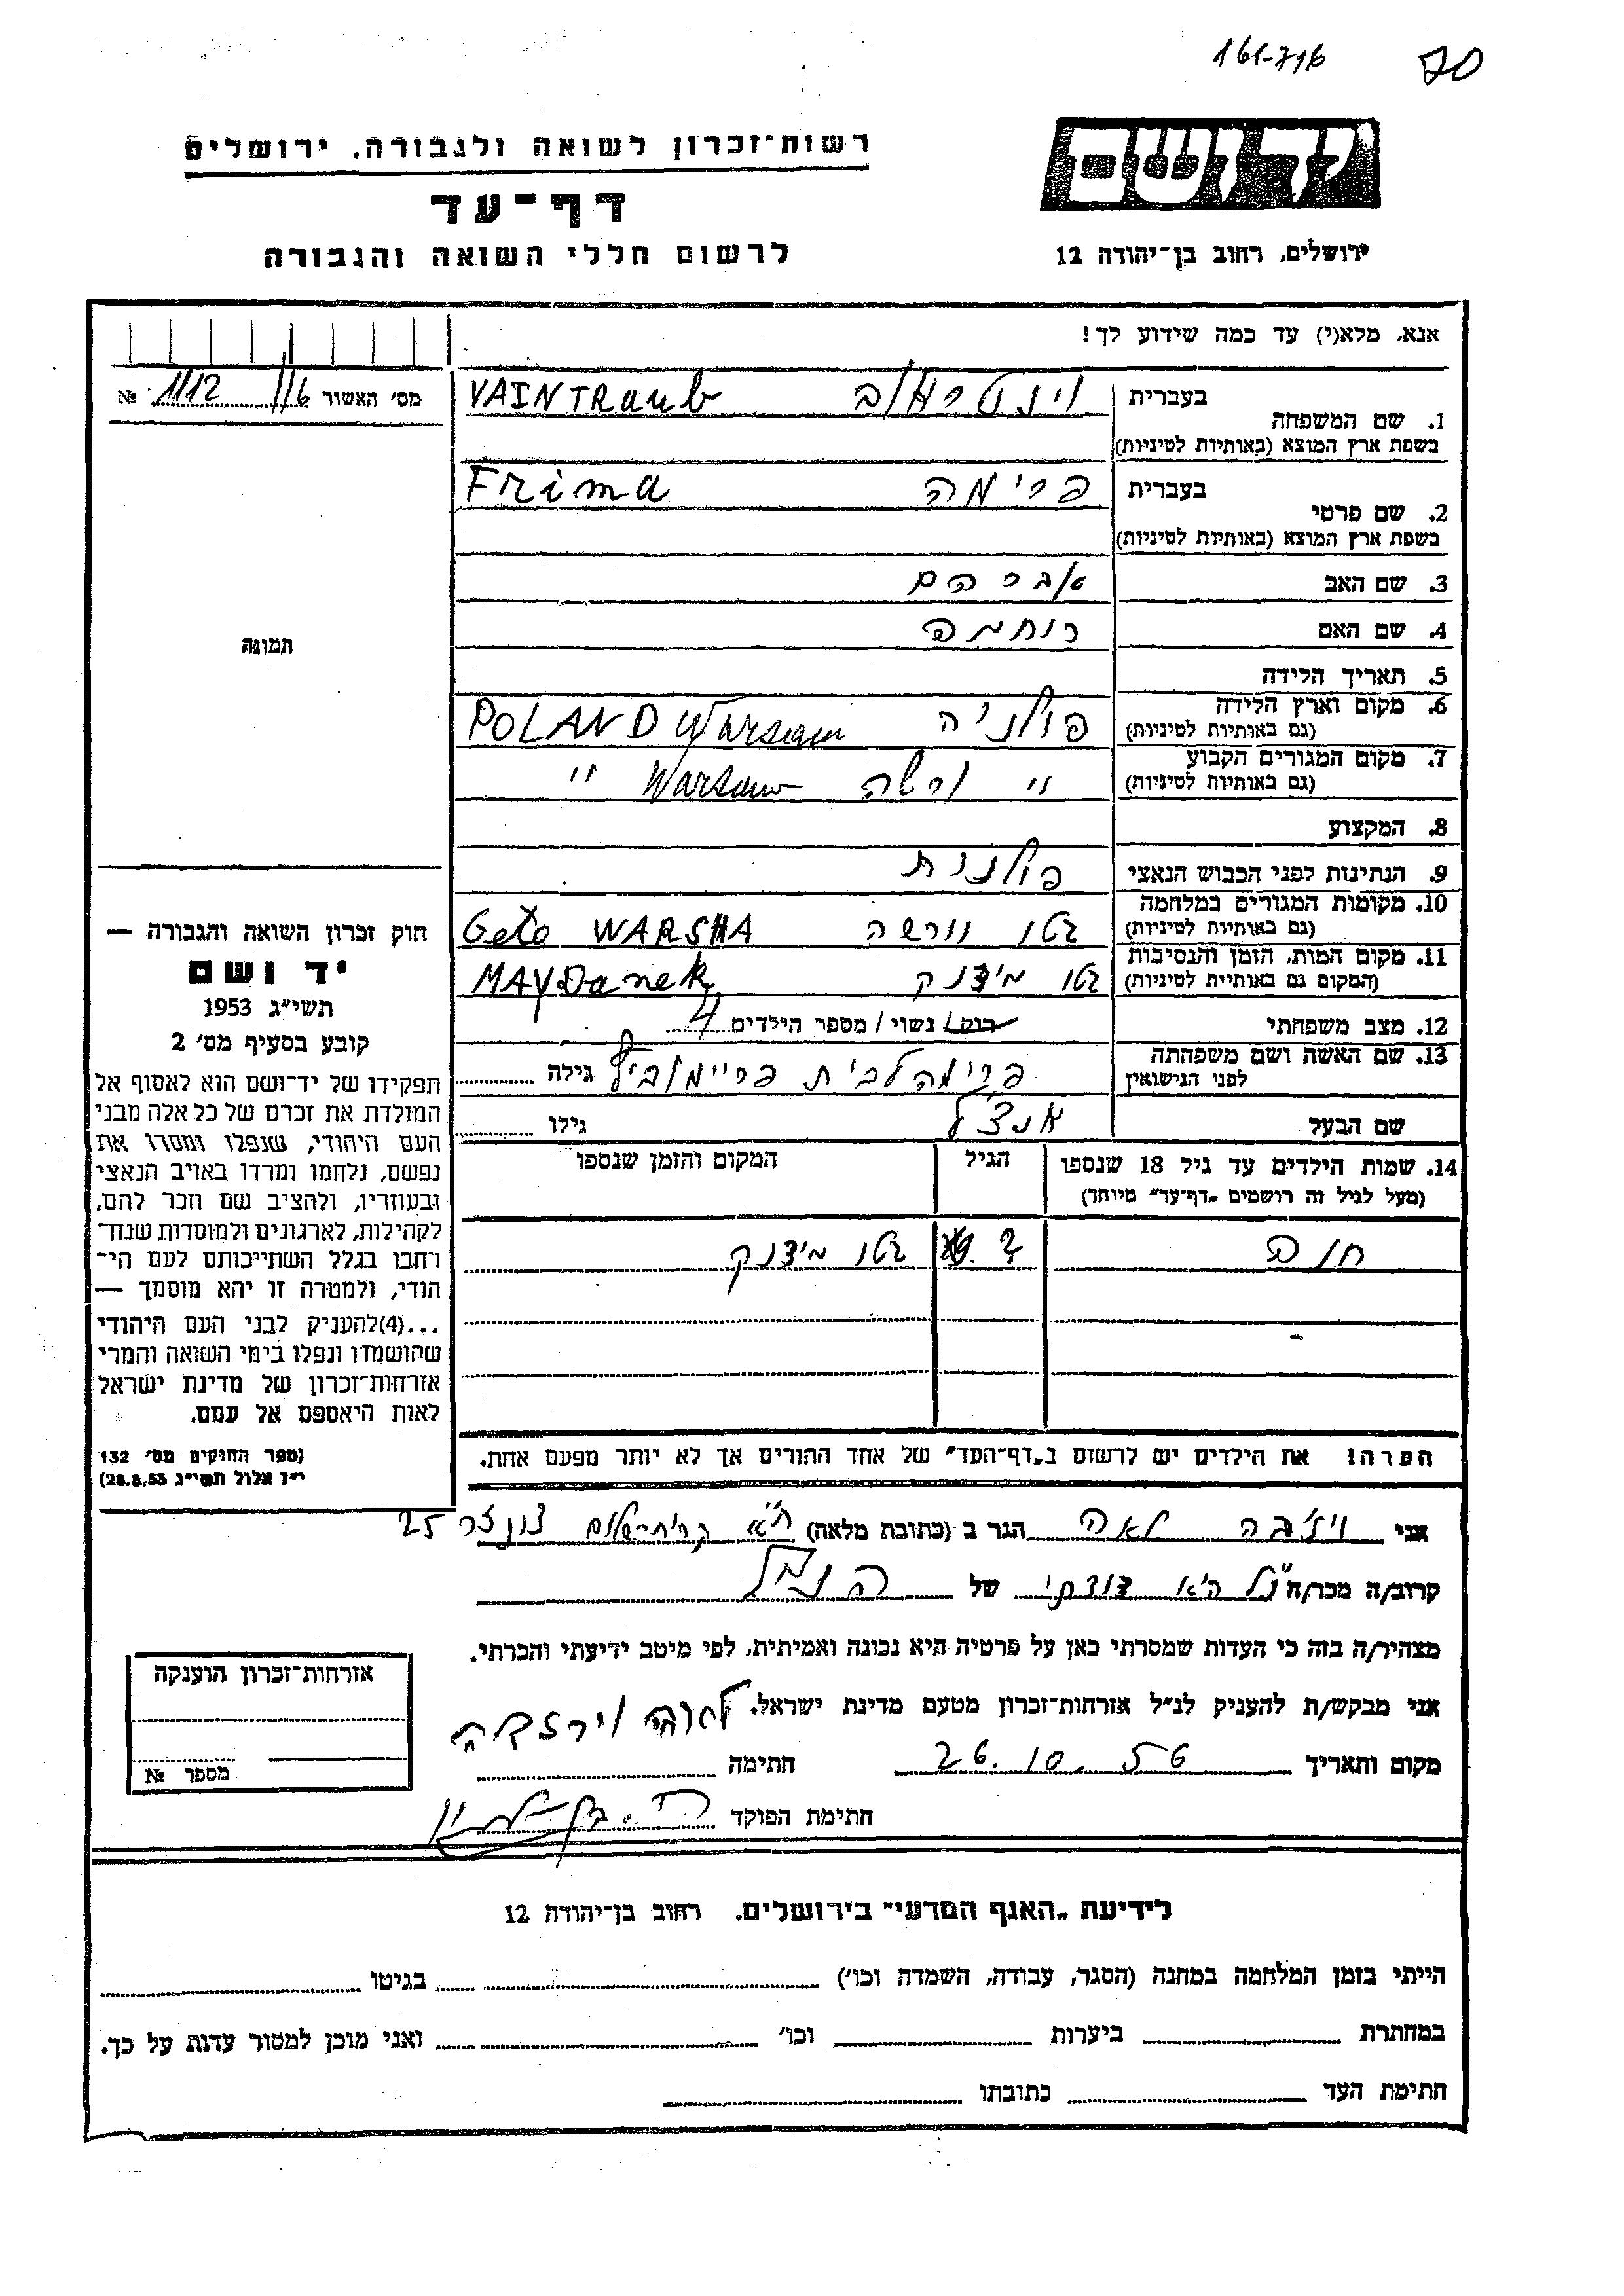 161-716 70
יד ושם
רשות־זכרון לשואה ולגבורה, ירושלים
דף־עד
לרשום חללי השואה והגבורה
ירושלים, רחוב בן־יהודה 12
אנא, מלא(י) עד כמה שידוע לך!
מס׳ האשור 116 1112 №
1. שם המשפחה
בעברית וינטראוב VAINTRaub
בשפת ארץ המוצא (באותיות לטיניות)
2. שם פרטי
בעברית פרימה Frima
בשפת ארץ המוצא (באותיות לטיניות)
3. שם האב אברהם
4. שם האם רוחמה
5. תאריך הלידה
6. מקום וארץ הלידה פולניה POLAND Warsaw
(גם באותיות לטיניות)
7. מקום המגורים הקבוע " ורשה Warsaw "
(גם באותיות לטיניות)
8. המקצוע
9. הנתינות לפני הכבוש הנאצי פולנית
10. מקומות המגורים במלחמה גטו וורשה Geto WARSHA
(גם באותיות לטיניות)
11. מקום המות, הזמן והנסיבות גטו מידנק MAYDanek
(המקום גם באותיית לטיניות)
12. מצב משפחתי רווק/ נשוי/ מספר הילדים 4
13. שם האשה ושם משפחתה פרימה לבית גילה
לפני הנישואין
שם הבעל אנצ׳ל גילו
14. שמות הילדים עד גיל 18 שנספו הגיל המקום והזמן שנספו
(מעל לגיל זה רושמים „דף־עד״ מיוחד)
גטו מידנק
הערה! את הילדים יש לרשום ב„דף־העד״ של אחד ההורים אך לא יותר מפעם אחת.
תמונה
חוק זכרון השואה והגבורה —
יד ושם
תשי״ג 1953
קובע בסעיף מס׳ 2
תפקידו של יד־ושם הוא לאסוף אל
המולדת את זכרם של כל אלה מבני
העם היהודי, שנפלו ומסרו את
נפשם, נלחמו ומרדו באויב הנאצי
ובעוזריו, ולהציב שם וזכר להם,
לקהילות, לארגונים ולמוסדות שנח־
רבו בגלל השתייכותם לעם הי־
הודי, ולמטרה זו יהא מוסמך —
...(4) להעניק לבני העם היהודי
שהושמדו ונפלו בימי השואה והמרי
אזרחות־זכרון של מדינת ישראל
לאות היאספם אל עמם.
(ספר החוקים מס׳ 132
י״ד אלול תשי״ג 28.8.53)
אני לאה הגר ב (כתובת מלאה) ת״א 25
קרוב/ה מכר/ה הנ״ל היא דודתי של הנ״ל
מצהיר/ה בזה כי העדות שמסרתי כאן על פרטיה היא נכונה ואמיתית, לפי מיטב ידיעתי והכרתי.
אני מבקש/ת להעניק לנ״ל אזרחות־זכרון מטעם מדינת ישראל.
מקום ותאריך 26.10.56 חתימה
חתימת הפוקד
אזרחות־זכרון הוענקה
מספר №
לידיעת „האגף המדעי״ בירושלים, רחוב בן־יהודה 12
הייתי בזמן המלחמה במחנה (הסגר, עבודה, השמדה וכו׳) בגיטו
במחתרת ביערות וכו׳ ואני מוכן למסור עדות על כך.
חתימת העד כתובתו